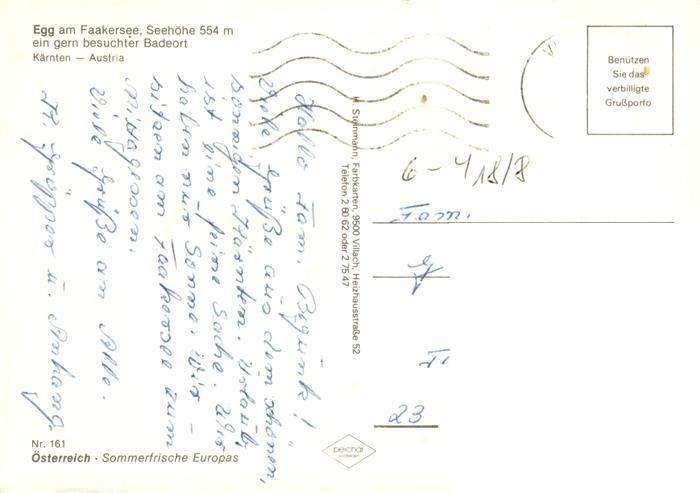 Egg am Faakersee, Seehöhe 554 m
ein gern besuchter Badeort
Kärnten — Austria
Hallo Fam.
Viele Grüße aus dem schönen,
sonnigen Kärnten. Urlaub
ist eine feine Sache. Wir
haben nur Sonne. Wir –
sitzen am Faakersee zum
Mittagessen.
Viele Grüße an Alle.
H. Steinmann, Farbkarten, 9500 Villach, Heizhausstraße 52
Telefon 2 80 62 oder 2 75 47
Benützen
Sie das
verbilligte
Grußporto
6 – 418/8
Fam.
23
Nr. 161
Österreich · Sommerfrische Europas